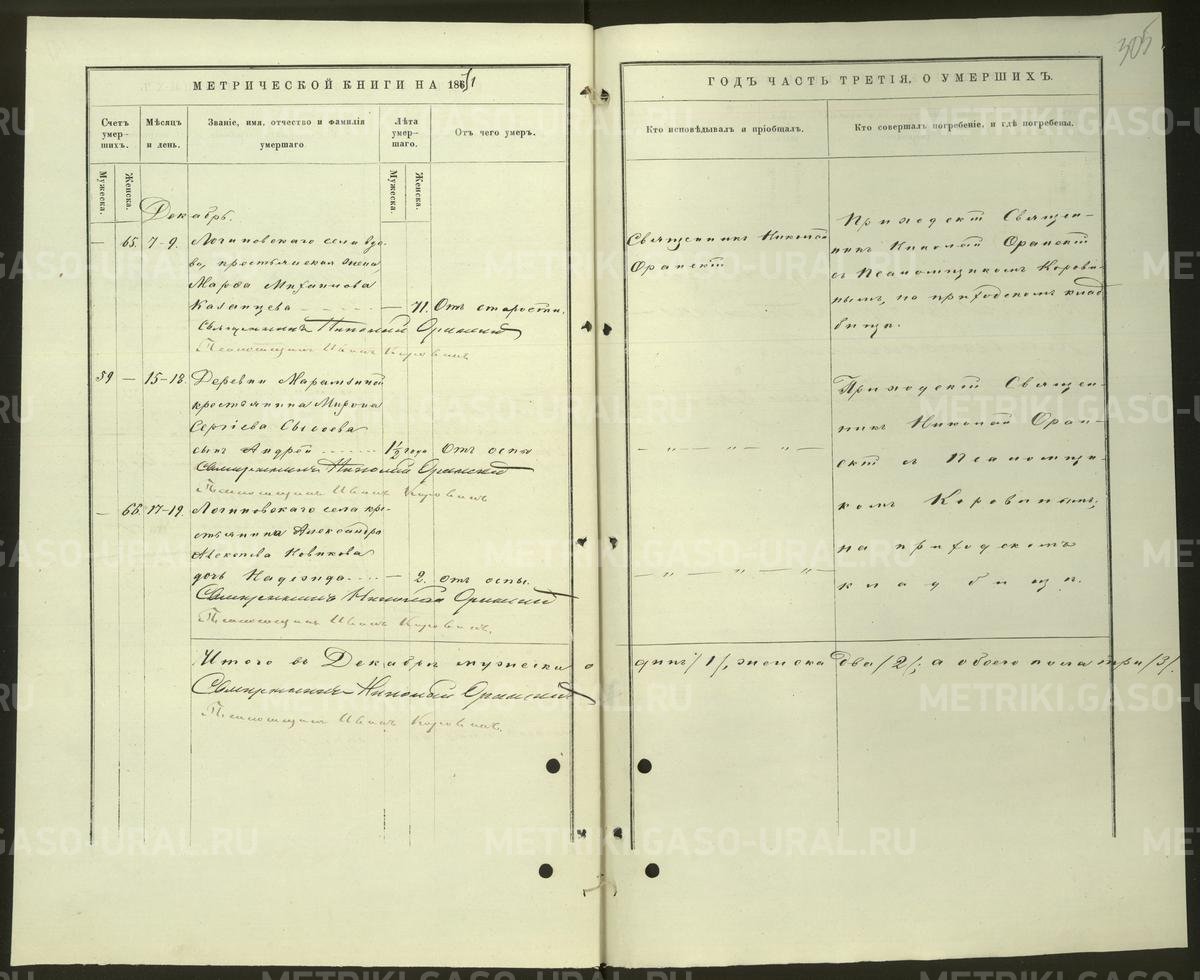 305
МЕТРИЧЕСКОЙ КНИГИ НА 1871
ГОДЪ ЧАСТЬ ТРЕТІЯ, О УМЕРШИХЪ.
Счетъ умер-шихъ.
Мѣсяцъ и день.
Званіе, имя, отчество и фамилія умершаго
Лѣта умер-шаго.
Отъ чего умеръ.
Кто исповѣдывалъ и пріобщалъ.
Кто совершалъ погребеніе, и гдѣ погребены.
Мужеска.
Женска.
Мужеска.
Женска.
Декабрь.
— 65. 7-9. Логиновскаго села вдо-
ва, крестьянская жена
Марѳа Михаилова
Казанцева — 71. Отъ старости.
Священникъ Николай
Приходскій Священ-
никъ Николай
съ Псаломщикомъ Корови-
нымъ, на приходскомъ клад
бищѣ.
Священникъ Николай
Псаломщикъ Иванъ Коровинъ
59 — 15-18. Деревни
крестьянина Мирона
Сергѣева Сысоева
сынъ Андрей 1½ года Отъ оспы
— „ — „ —
Приходскій Священ-
никъ Николай
съ Псаломщи-
комъ Коровинымъ,
на приходскомъ
кладбищѣ.
Священникъ Николай
Псаломщикъ Иванъ Коровинъ
— 66. 17-19. Логиновскаго села кре-
стьянина Александра
Алексѣева Новикова
дочь Надежда — 2. отъ оспы.
— „ — „ —
Священникъ Николай
Псаломщикъ Иванъ Коровинъ.
Итого въ Декабрѣ мужеска одинъ /1/, женска два /2/; а обоего пола три /3/.
Священникъ Николай
Псаломщикъ Иванъ Коровинъ.
METRIKI.GASO-URAL.RU